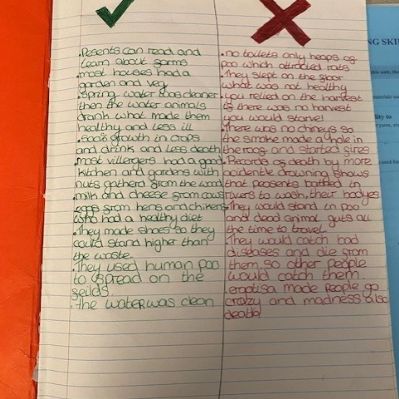 ✓
.Peasents can read and
learn about germs
.most houses had a
garden and veg
.spring water was cleaner
then the water animals
drank what made them
healthy and less ill
.60's growth in crops
and drink and less death
.most villergers had a good
kitchen and gardens with
nuts gatherd from the wood
milk and cheese from cows
eggs from hens and chikens
who had a healthy diet
.They made shoes so they
could stand higher than
the waste.
.They used human poo
to spread on the
.The water was clean
X
.no toilets only heaps of
poo which attracted rats
.They slept on the floor
what was not healthy
.you relied on the harvest
if there was no harvest
you would starve!
.There was no chineys so
the smoke made a hole in
the roof and started fires
.Records of death by more
accidentle drowning shows
that peasents bathed in
rivers to wash their bodyes
.They would stand in poo
and dead animal guts all
the time to travel.
.They would catch bad
diseases and die from
them so other people
would catch them.
people go
crazy and madness also
death!
NG SKI